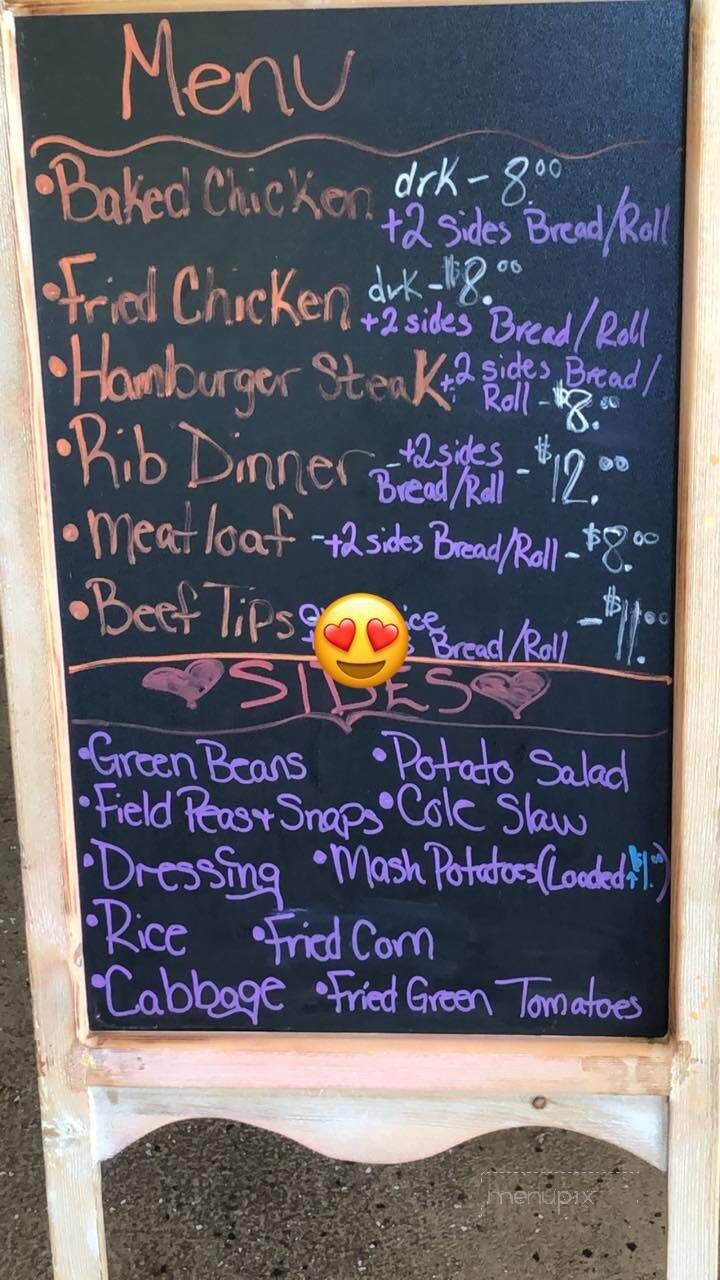 Menu
•Baked Chicken drk - 8.00
+2 sides Bread/Roll
•Fried Chicken drk - $8.00
+2 sides Bread/Roll
•Hamburger Steak +2 sides Bread/
Roll - $8.00
•Rib Dinner - +2 sides
Bread/Roll - $12.00
•Meatloaf - +2 sides Bread/Roll - $8.00
•Beef Tips - $11.00
Bread/Roll
SIDES
•Green Beans •Potato Salad
•Field Peas + Snaps •Cole Slaw
•Dressing •Mash Potatoes (Loaded $1.00)
•Rice •Fried Corn
•Cabbage •Fried Green Tomatoes
menupix